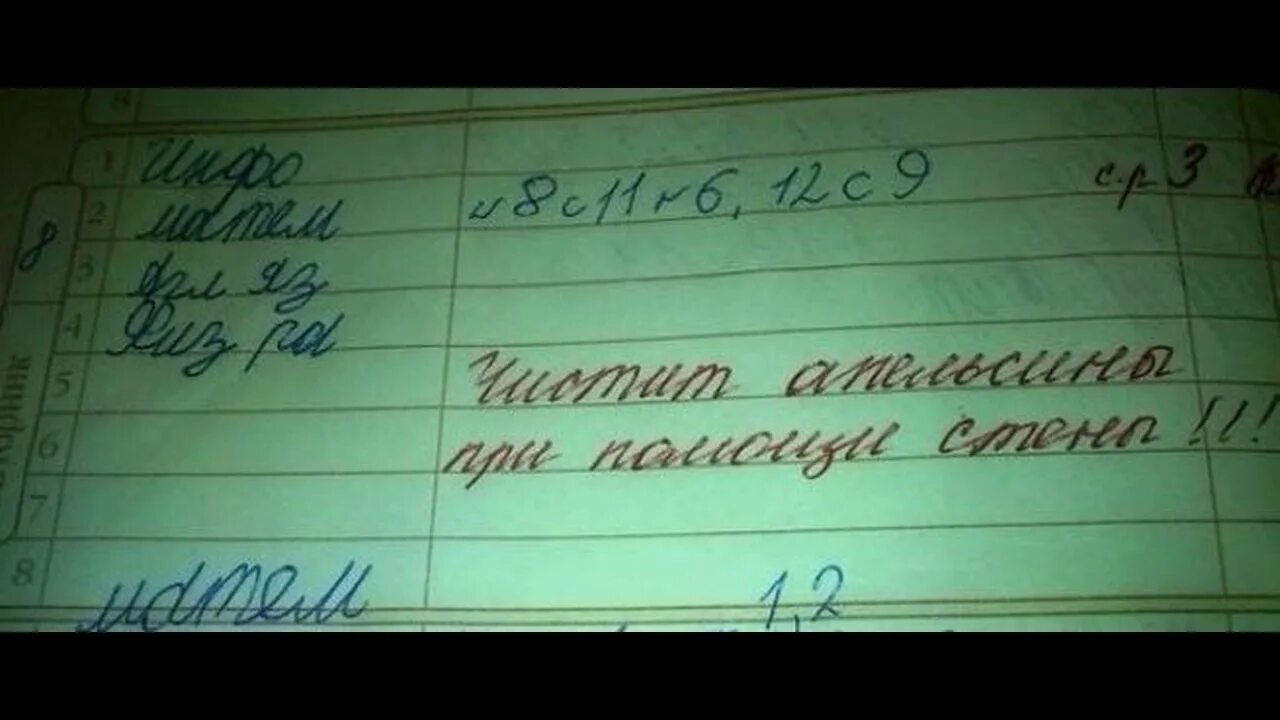 8
1 Инфо
2 матем № 8 с 11 № 6, 12 с 9 с.р 3
3 Агл яз
4 Физ ра
5 Чистит апельсины
6 при помощи стены!!!
7
8
матем 1,2